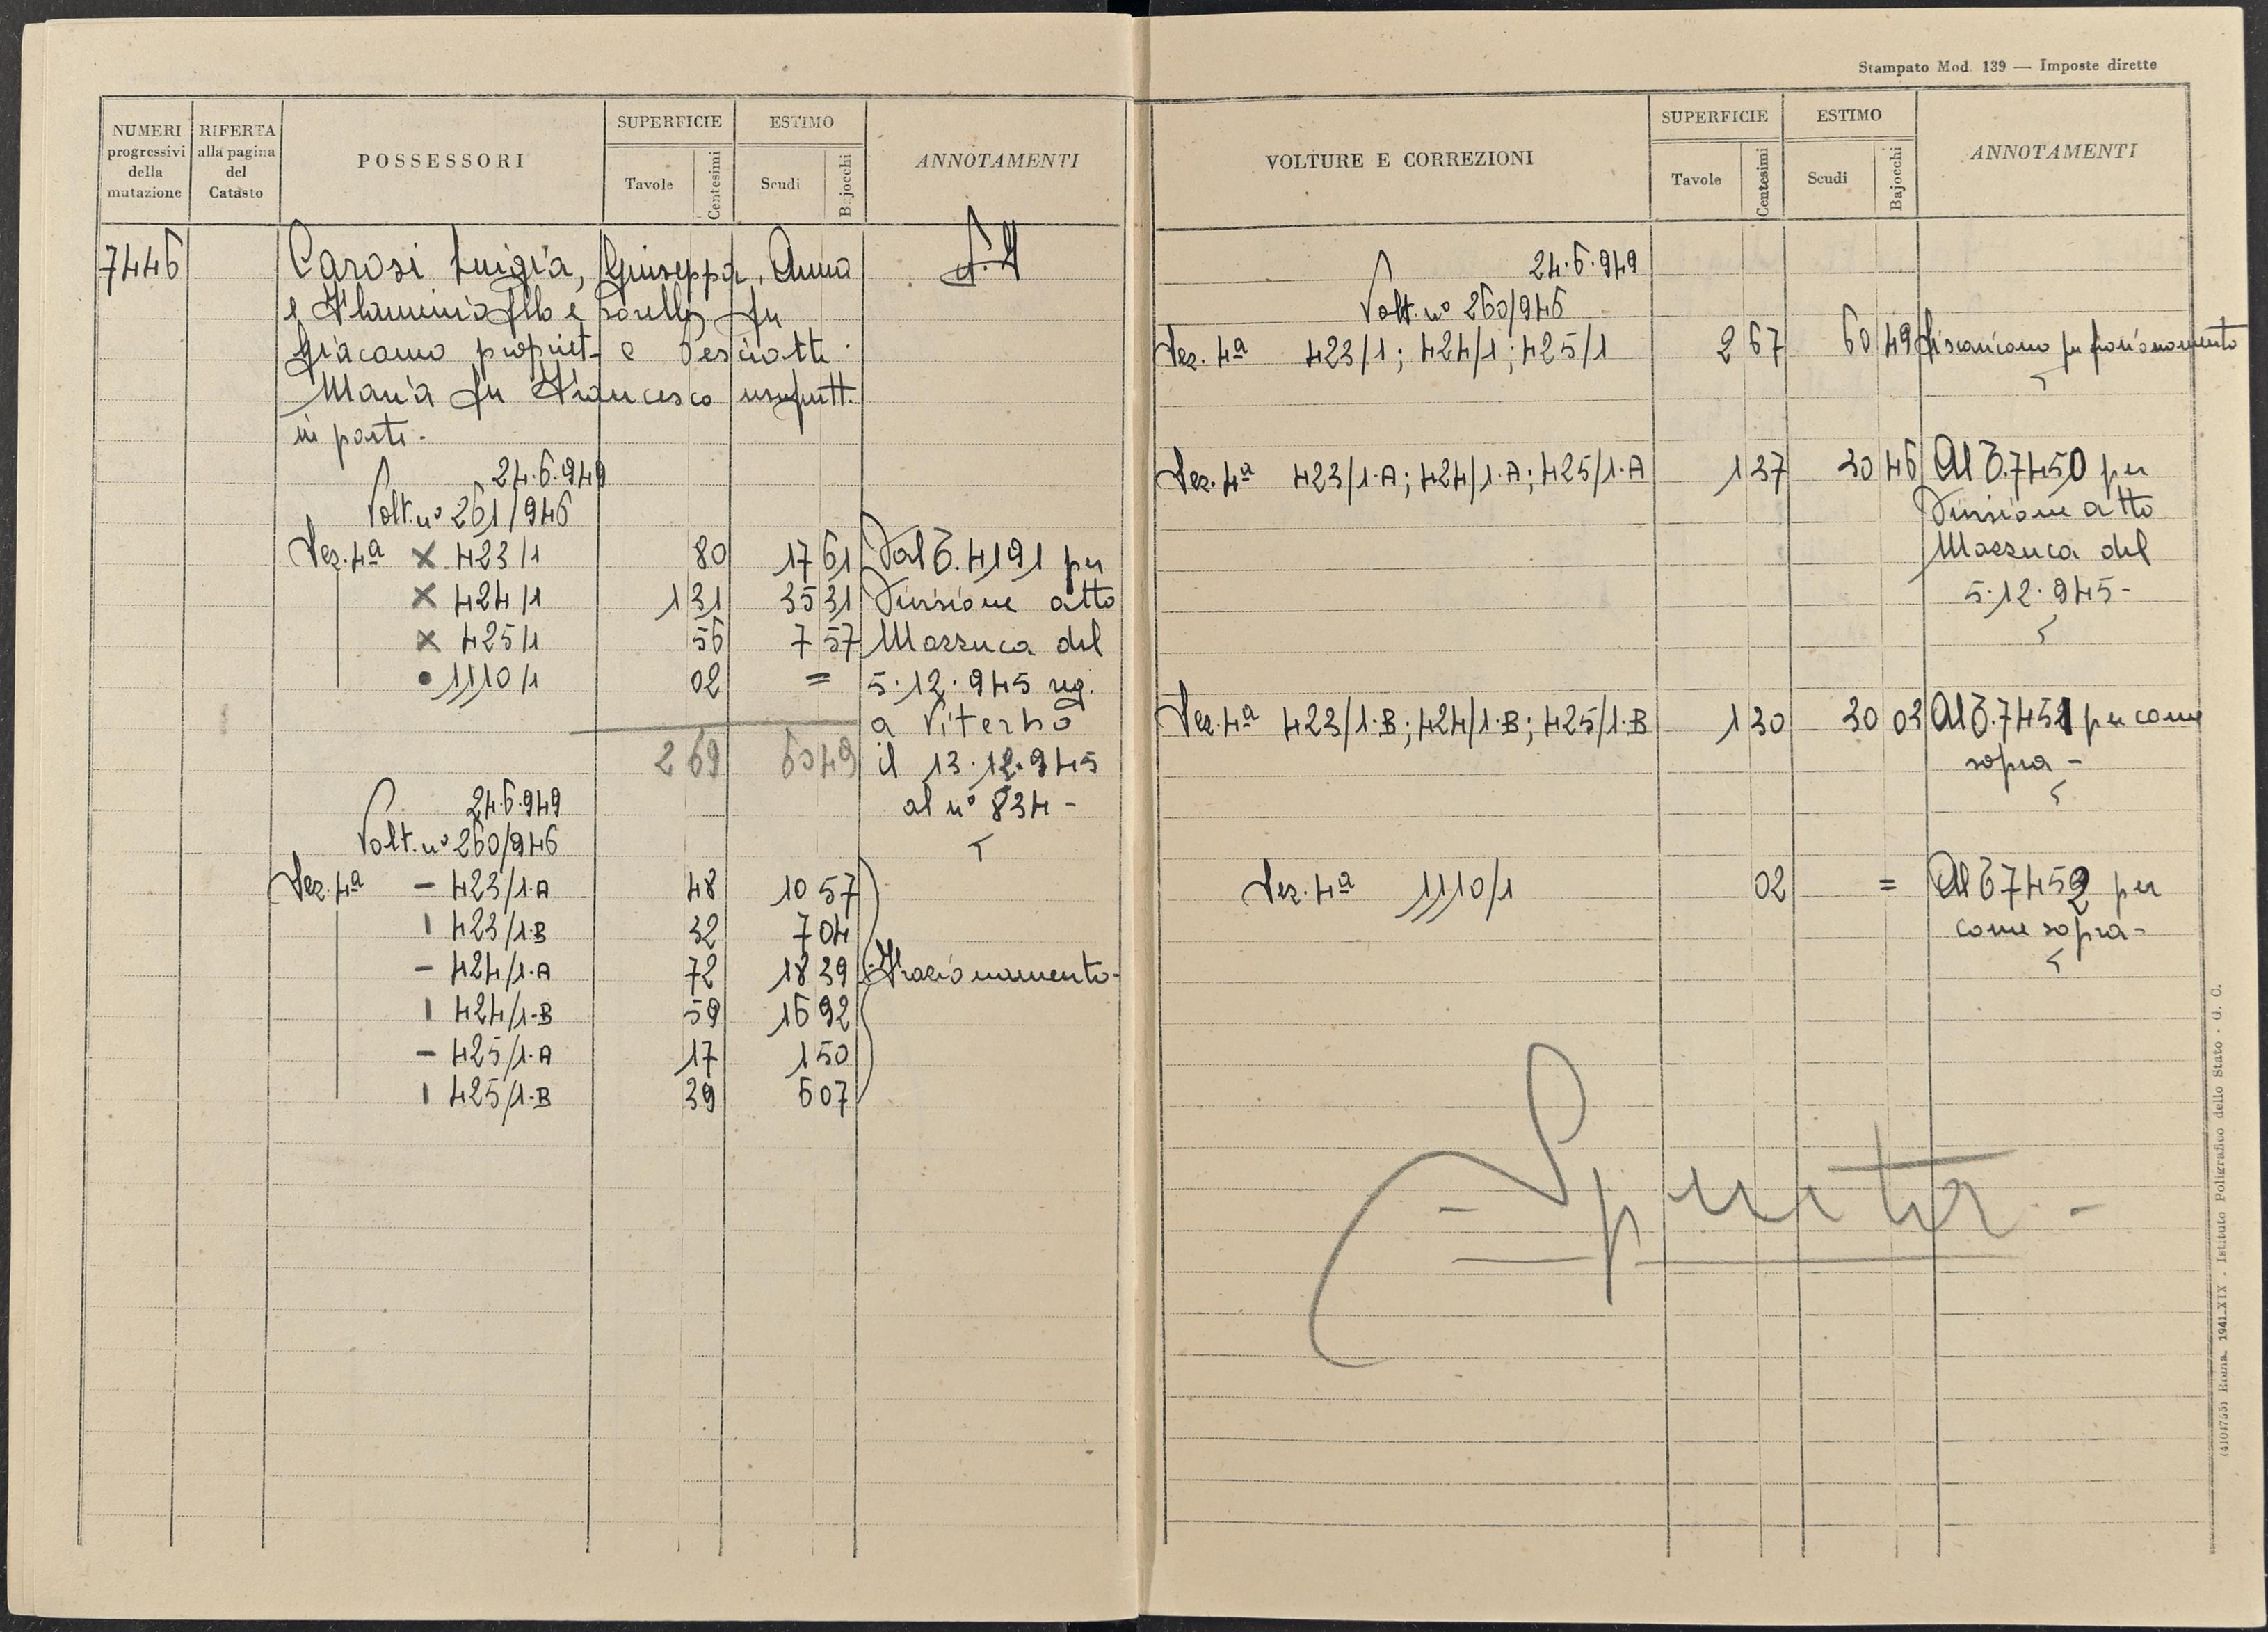 Stampato Mod. 139 — Imposte dirette
NUMERI progressivi della mutazione
RIFERTA alla pagina del Catasto
POSSESSORI
SUPERFICIE
Tavole
Centesimi
ESTIMO
Scudi
Bajocchi
ANNOTAMENTI
7446
Carosi Luigia, Giuseppa, Anna
e Flaminia fllo e sorelle fu
Giacomo propriet- e Pesciotti
Maria fu Francesco usufrutt.
in parte-
24.6.949
Volt. nº 261/946
Sez. 4ª × 423/1 80 17 61 Dal T. 4191 per
× 424/1 1 31 35 31 Divisione atto
× 425/1 56 7 57 Mazzuca del
• 1110/1 02 = 5.12.945 reg.
a Viterbo
2 69 60 49 il 13.12.945
al nº 834-
24.6.949
Volt. nº 260/946
Sez. 4ª - 423/1.A 48 10 57
ı 423/1.B 32 7 04
- 424/1.A 72 18 39 Frazionamento-
ı 424/1-B 59 16 92
- 425/1.A 17 1 50
ı 425/1.B 39 6 07
VOLTURE E CORREZIONI
SUPERFICIE
Tavole
Centesimi
ESTIMO
Scudi
Bajocchi
ANNOTAMENTI
24.6.949
Volt. nº 260/946
Sez. 4ª 423/1; 424/1; 425/1 2 67 60 49 Si scaricano per frazionamento
Sez. 4ª 423/1.A; 424/1.A; 425/1.A 1 37 30 46 Al T. 7450 per
Divisione atto
Mazzuca del
5.12.945-
Sez. 4ª 423/1.B; 424/1.B; 425/1.B 1 30 30 03 Al T. 7451 per come
sopra-
Sez. 4ª 1110/1 02 = Al T 7452 per
come sopra-
- Spenta -
(4101755) Roma, 1941-XIX - Istituto Poligrafico dello Stato - G. C.